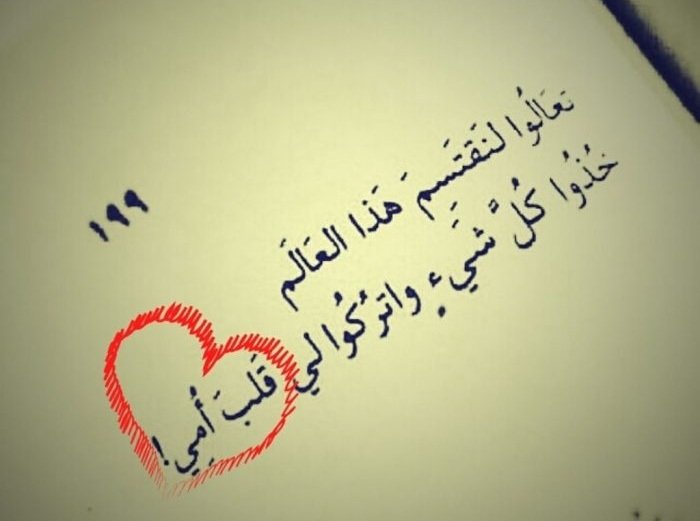 ١٩٩
تَعَالُوا لنَقتَسِمَ هَذا العَالَم
خُذُوا كُلَّ شَيءٍ واترُكُوا لي قَلبَ أُمِي!